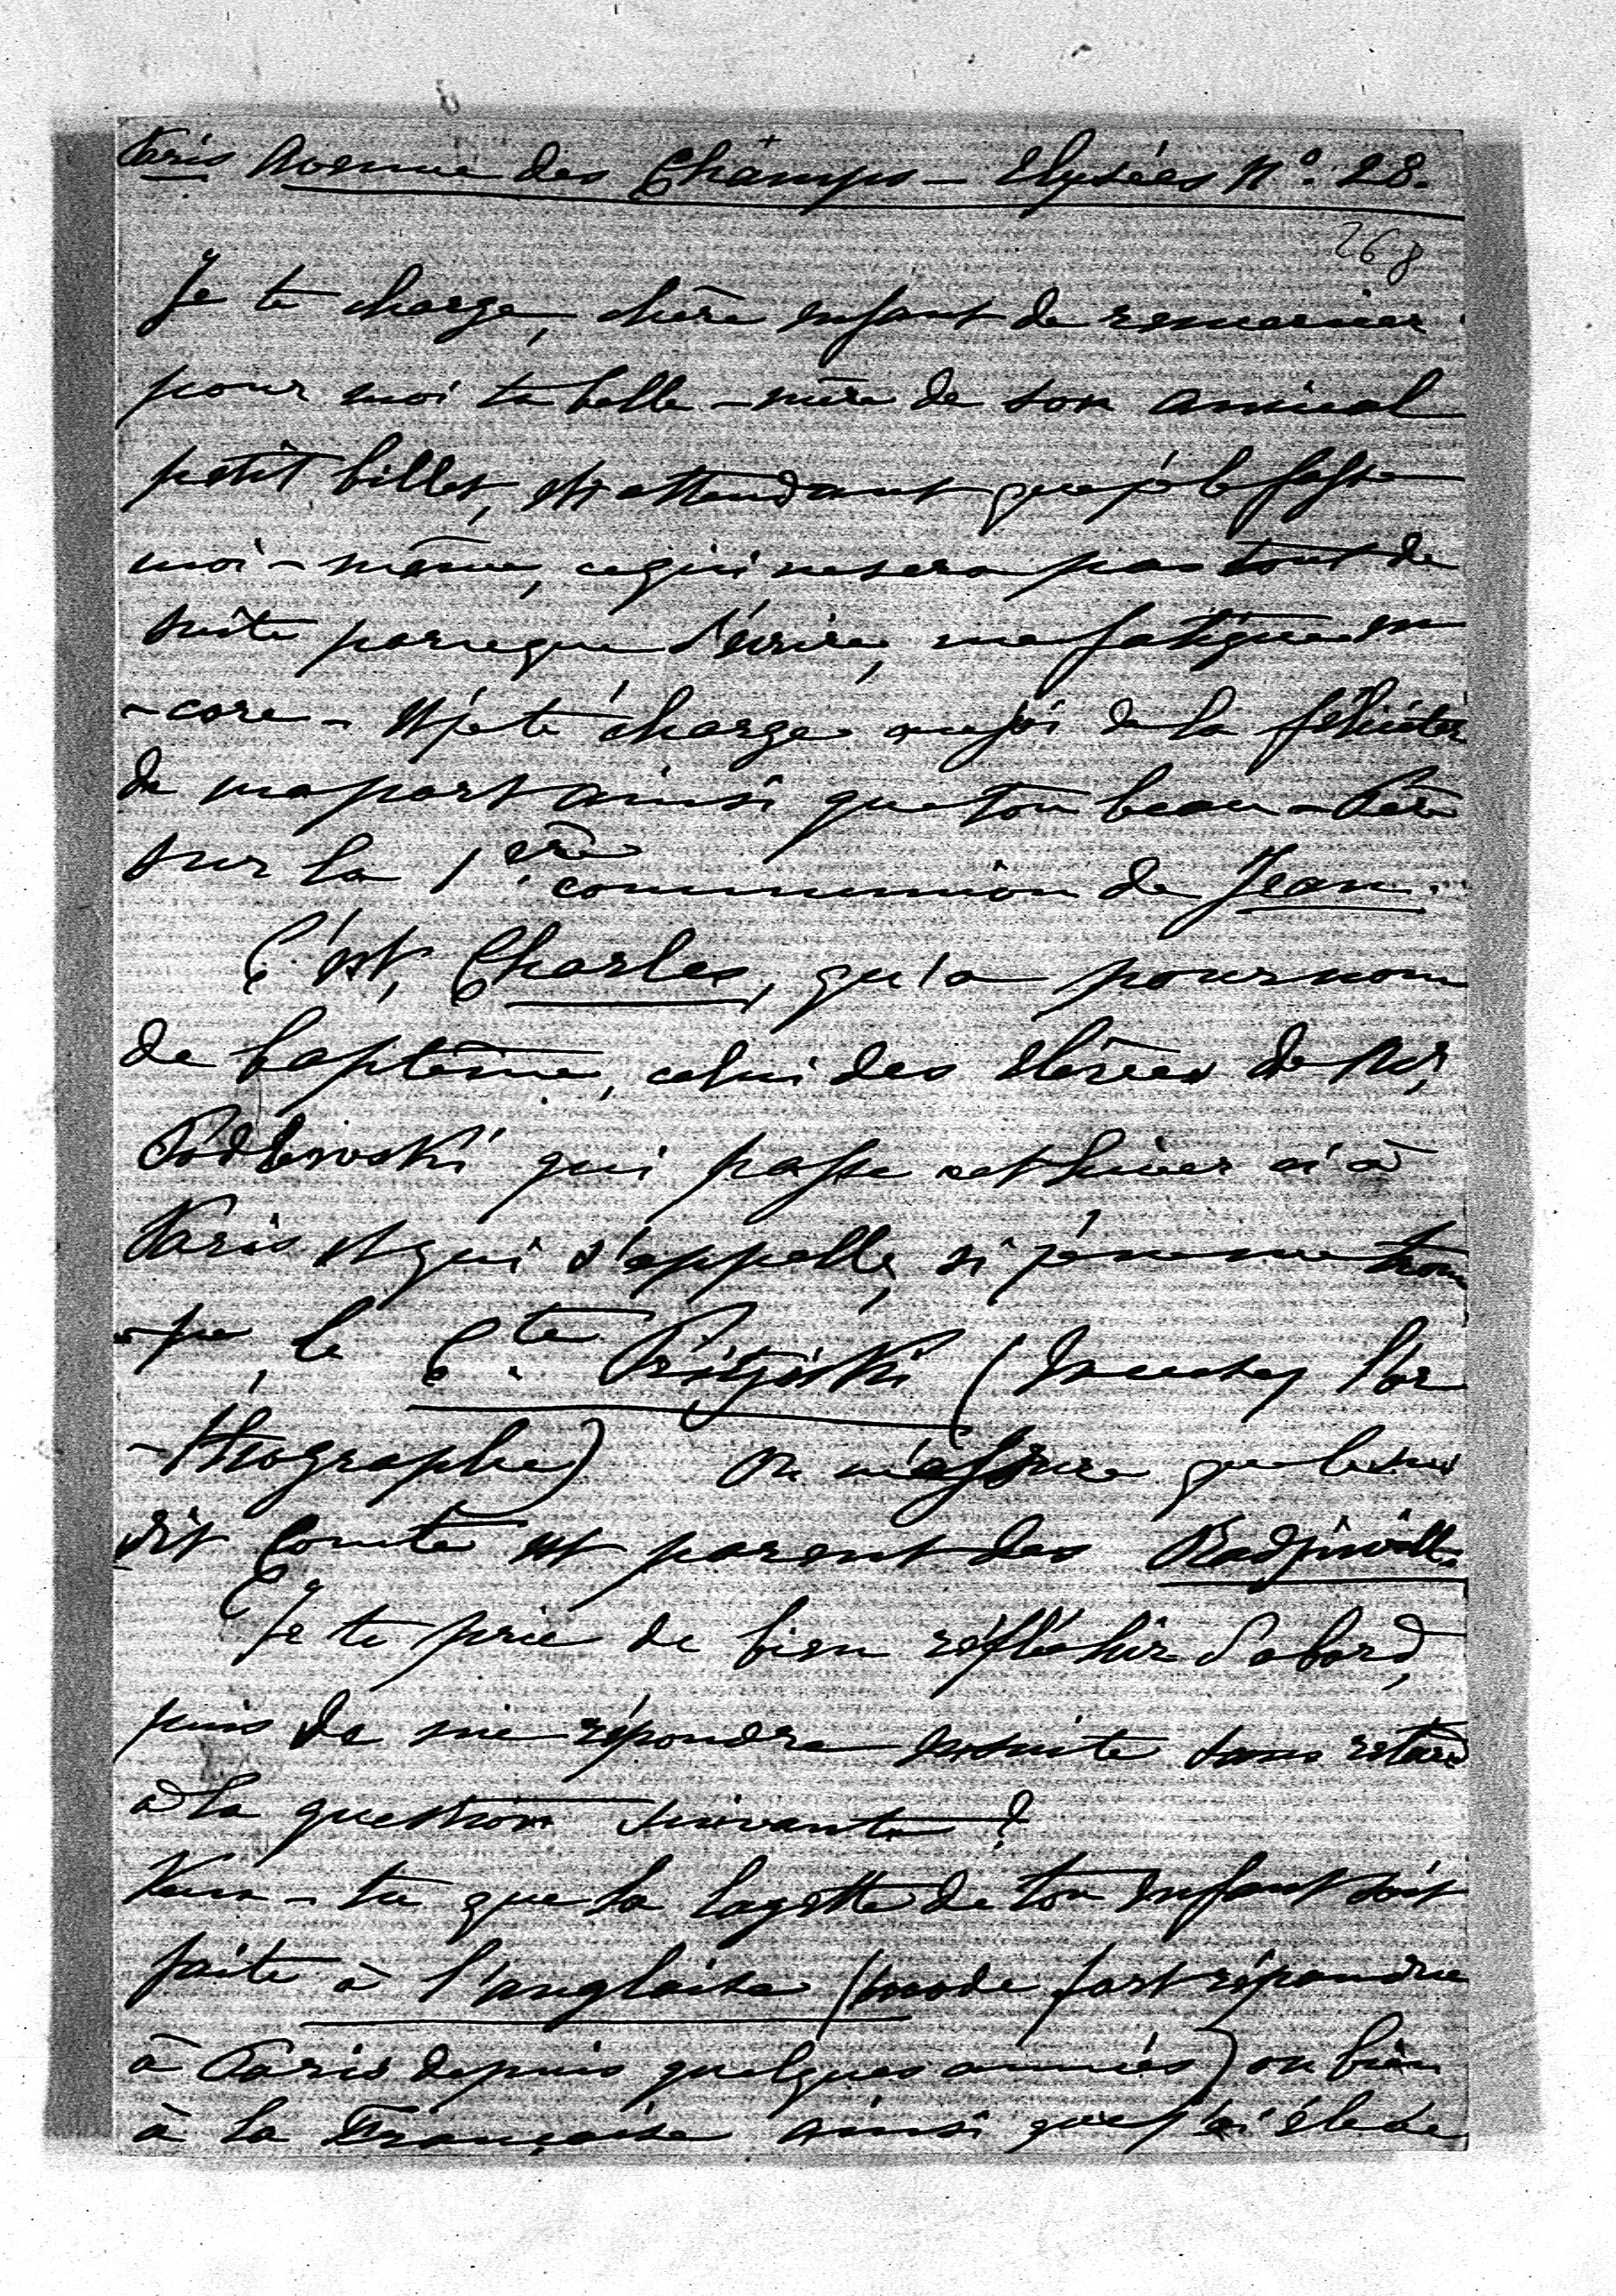 Paris Avenue des Champs-Elysées N°. 28.
268
Je te charge, chère enfant de remercier
pour moi ta belle-mère de son amical
petit billet, en attendant que je le fasse
moi-même, ce qui ne sera pas tout de
suite parce que d'écrire, me fatigue en
-core - et je te charge aussi de la féliciter
de ma part ainsi que ton beau-Père
sur la 1ère communion de Jean.
C'est, Charles, qu'a pour nom
de baptême, celui des élèves de Mr
qui passe cet hiver ici à
Paris et qui s'appelle, si je ne me trom
-pe, le Cte (excusez l'or
-thographe) on m'assure que le sus
dit Comte est parent des
Je te prie de bien réfléchir d'abord,
puis de me répondre ensuite sans retard
à la question suivante :
Veux-tu que la layette de ton enfant soit
faite à l'anglaise (mode fort répandue
à Paris depuis quelques années) ou bien
à la Française ainsi que j'ai élevée